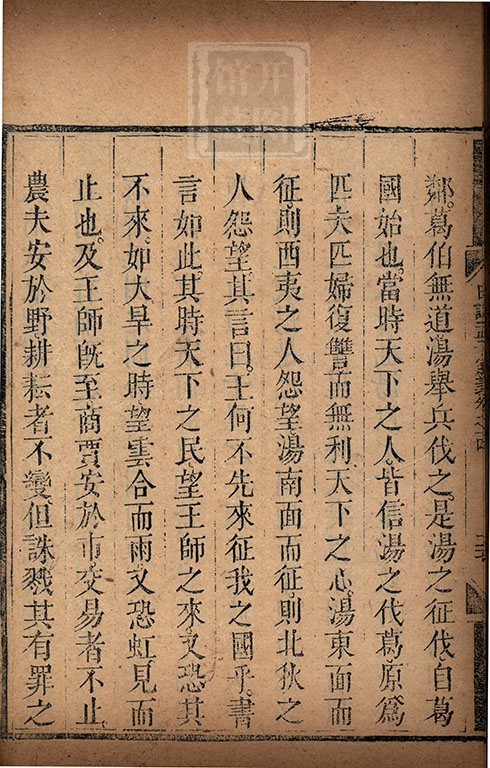 鄰葛伯無道湯舉兵伐之是湯之征伐自葛
國始也當時天下之人皆信湯之伐葛原爲
匹夫匹婦復讐而無利天下之心湯東面而
征則西夷之人怨望湯南面而征則北狄之
人怨望其言曰王何不先來征我之國乎書
言如此其時天下之民望王師之來又恐其
不來如大旱之時望雲合而雨又恐虹見而
止也及王師旣至商賈安於市交易者不止
農夫安於野耕耘者不變但誅戮其有罪之
开图
馆